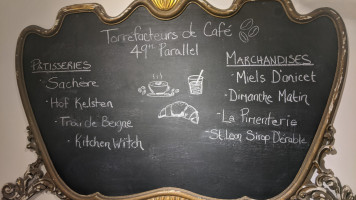 Torréfacteurs de Café
49th Parallel
Pâtisseries
· Sachère
· Hof Kelsten
· Trou de Beigne
· Kitchen Witch
Marchandises
· Miels D'anicet
· Dimanche Matin
· La Pimenterie
· St Leon Sirop D'érable